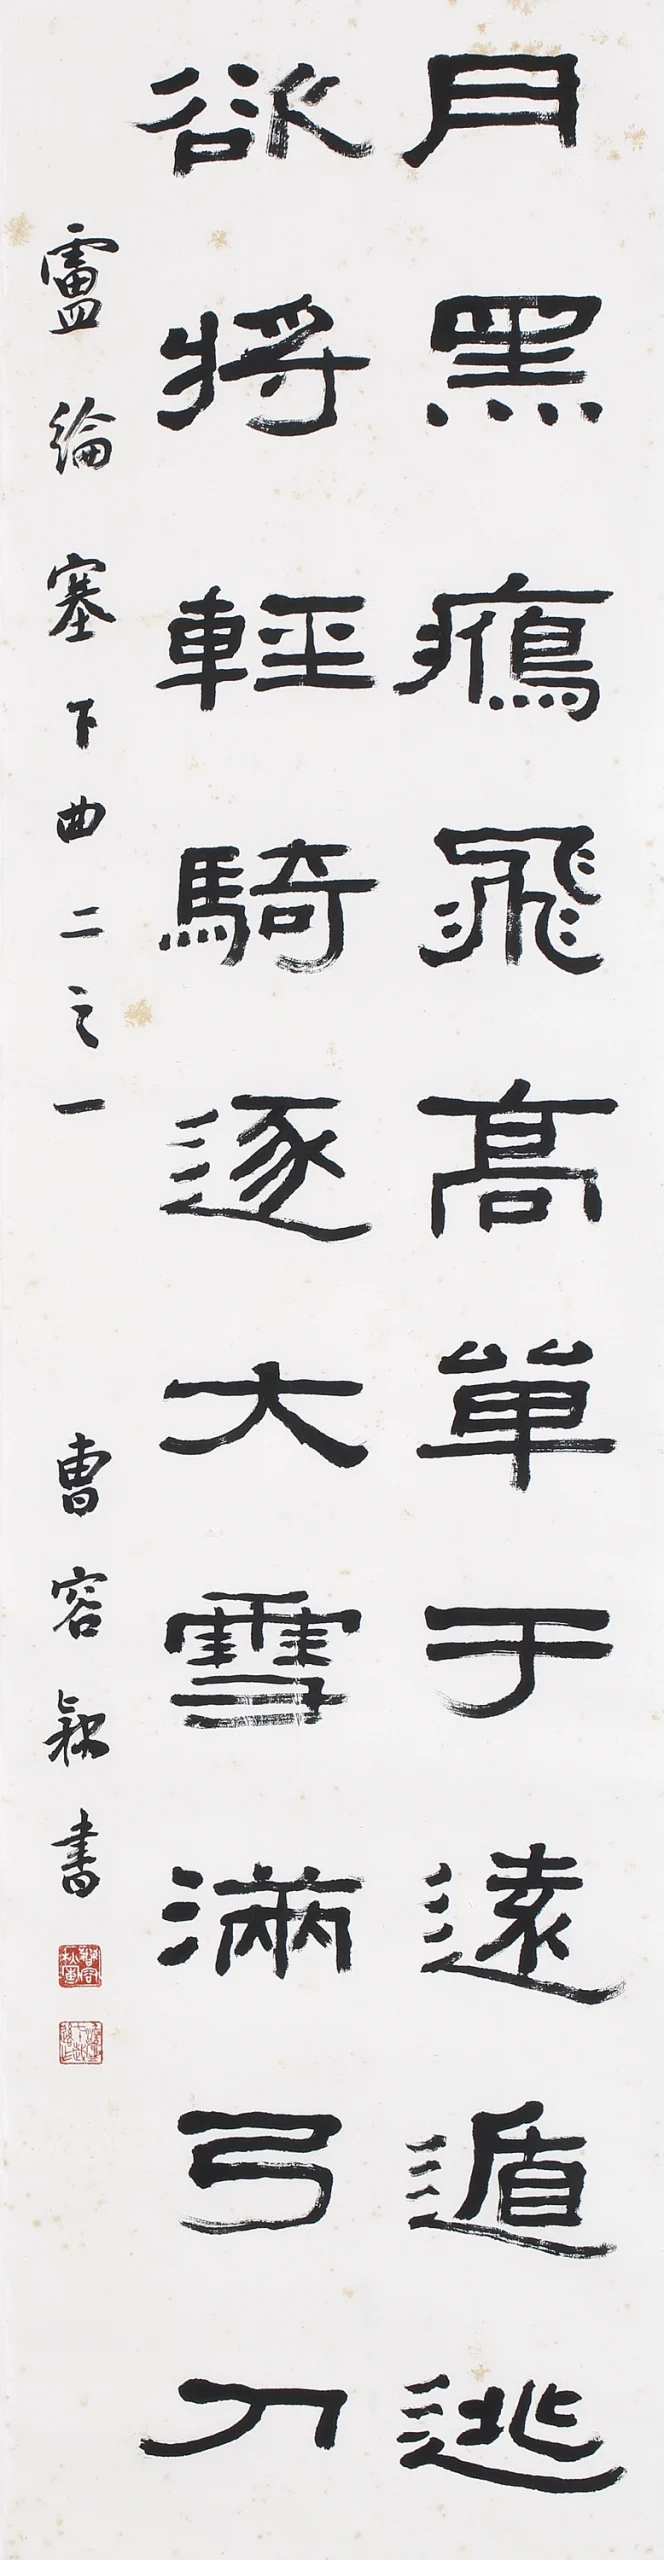 月黑鴈飛高單于遠遁逃
欲將輕騎逐大雪滿弓刀
盧綸塞下曲二之一 曹容 書